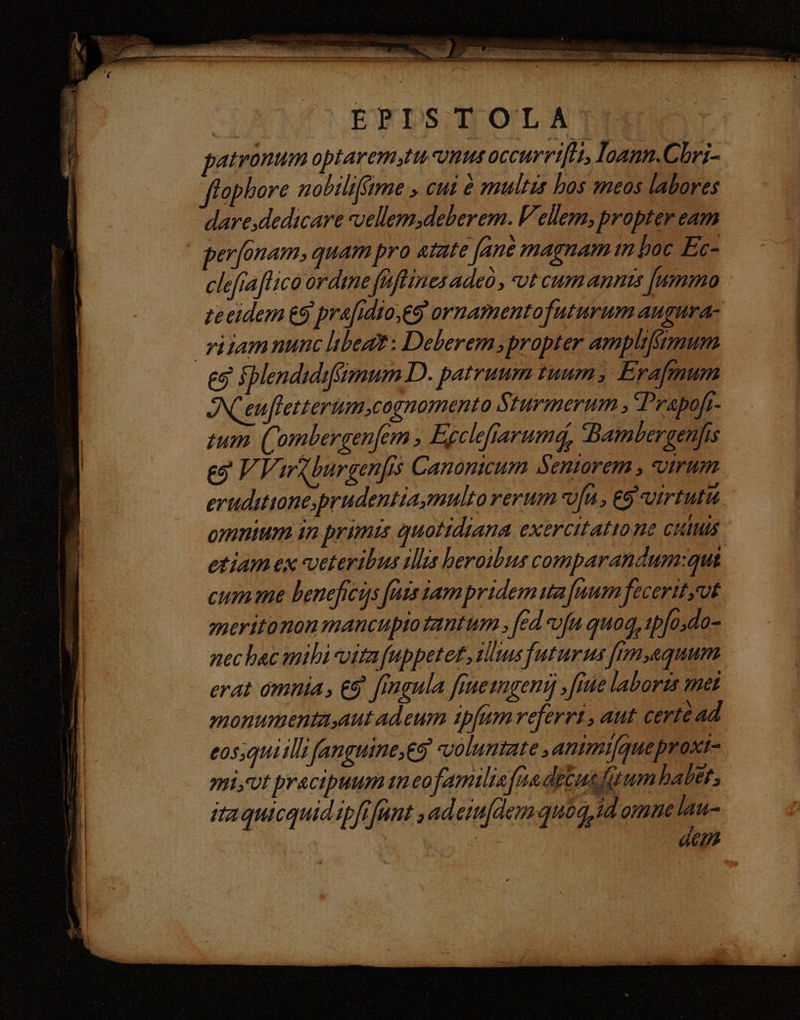 EPISTOLA
patronum optarem,tu vnus occurristi, Ioann. Chri-
stophore nobilissime, cui è multis hos meos labores
dare,dedicare vellem,deberem. Vellem, propter eam
personam, quam pro ætate sanè magnam in hoc Ec-
clesiastico ordine sustines adeò, vt cum annis summo
te eidem & præsidio,& ornamento futurum augura-
ri iam nunc libeat: Deberem, propter amplissimum
& splendidissimum D. patruum tuum, Erasmum
Neustetterum,cognomento Sturmerum, Præposi-
tum Combergensem, Ecclesiarumq; Bambergensis
& VVirzburgensis Canonicum Seniorem, virum
eruditione,prudentia,multo rerum vsu, & virtutū
omnium in primis quotidiana exercitatione cuiuis
etiam ex veteribus illis heroibus comparandum:qui
cum me beneficijs suis iampridem ita suum fecerit,vt
meritò non mancupio tantum, sed vsu quoq; ipso,do-
nec hac mihi vita suppetet, illius futurus sim,æquum
erat omnia, & singula siue ingenij, siue laboris mei
monumenta,aut ad eum ipsum referri, aut certè ad
eos,qui illi sanguine,& voluntate, animisque proxi-
mi,vt præcipuum in eo familiæ suæ decus situm habet,
ita quicquid ipsi sunt, ad eiusdem quoq; id omne lau-
dem